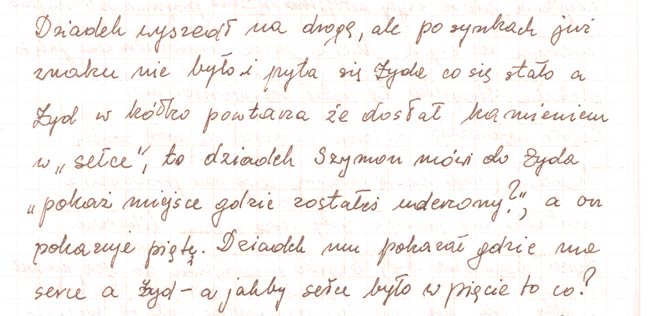 Dziadek wyszedł na drogę, ale po synkach już
znaku nie było i pyta się Żyda co się stało a
Żyd w kółko powtarza że dostał kamieniem
w „sełce”, to dziadek Szymon mówi do Żyda
„pokaż miejsce gdzie zostałeś uderzony?”, a on
pokazuje piętę. Dziadek mu pokazał gdzie ma
serce a Żyd – a jakby sełce było w pięcie to co?